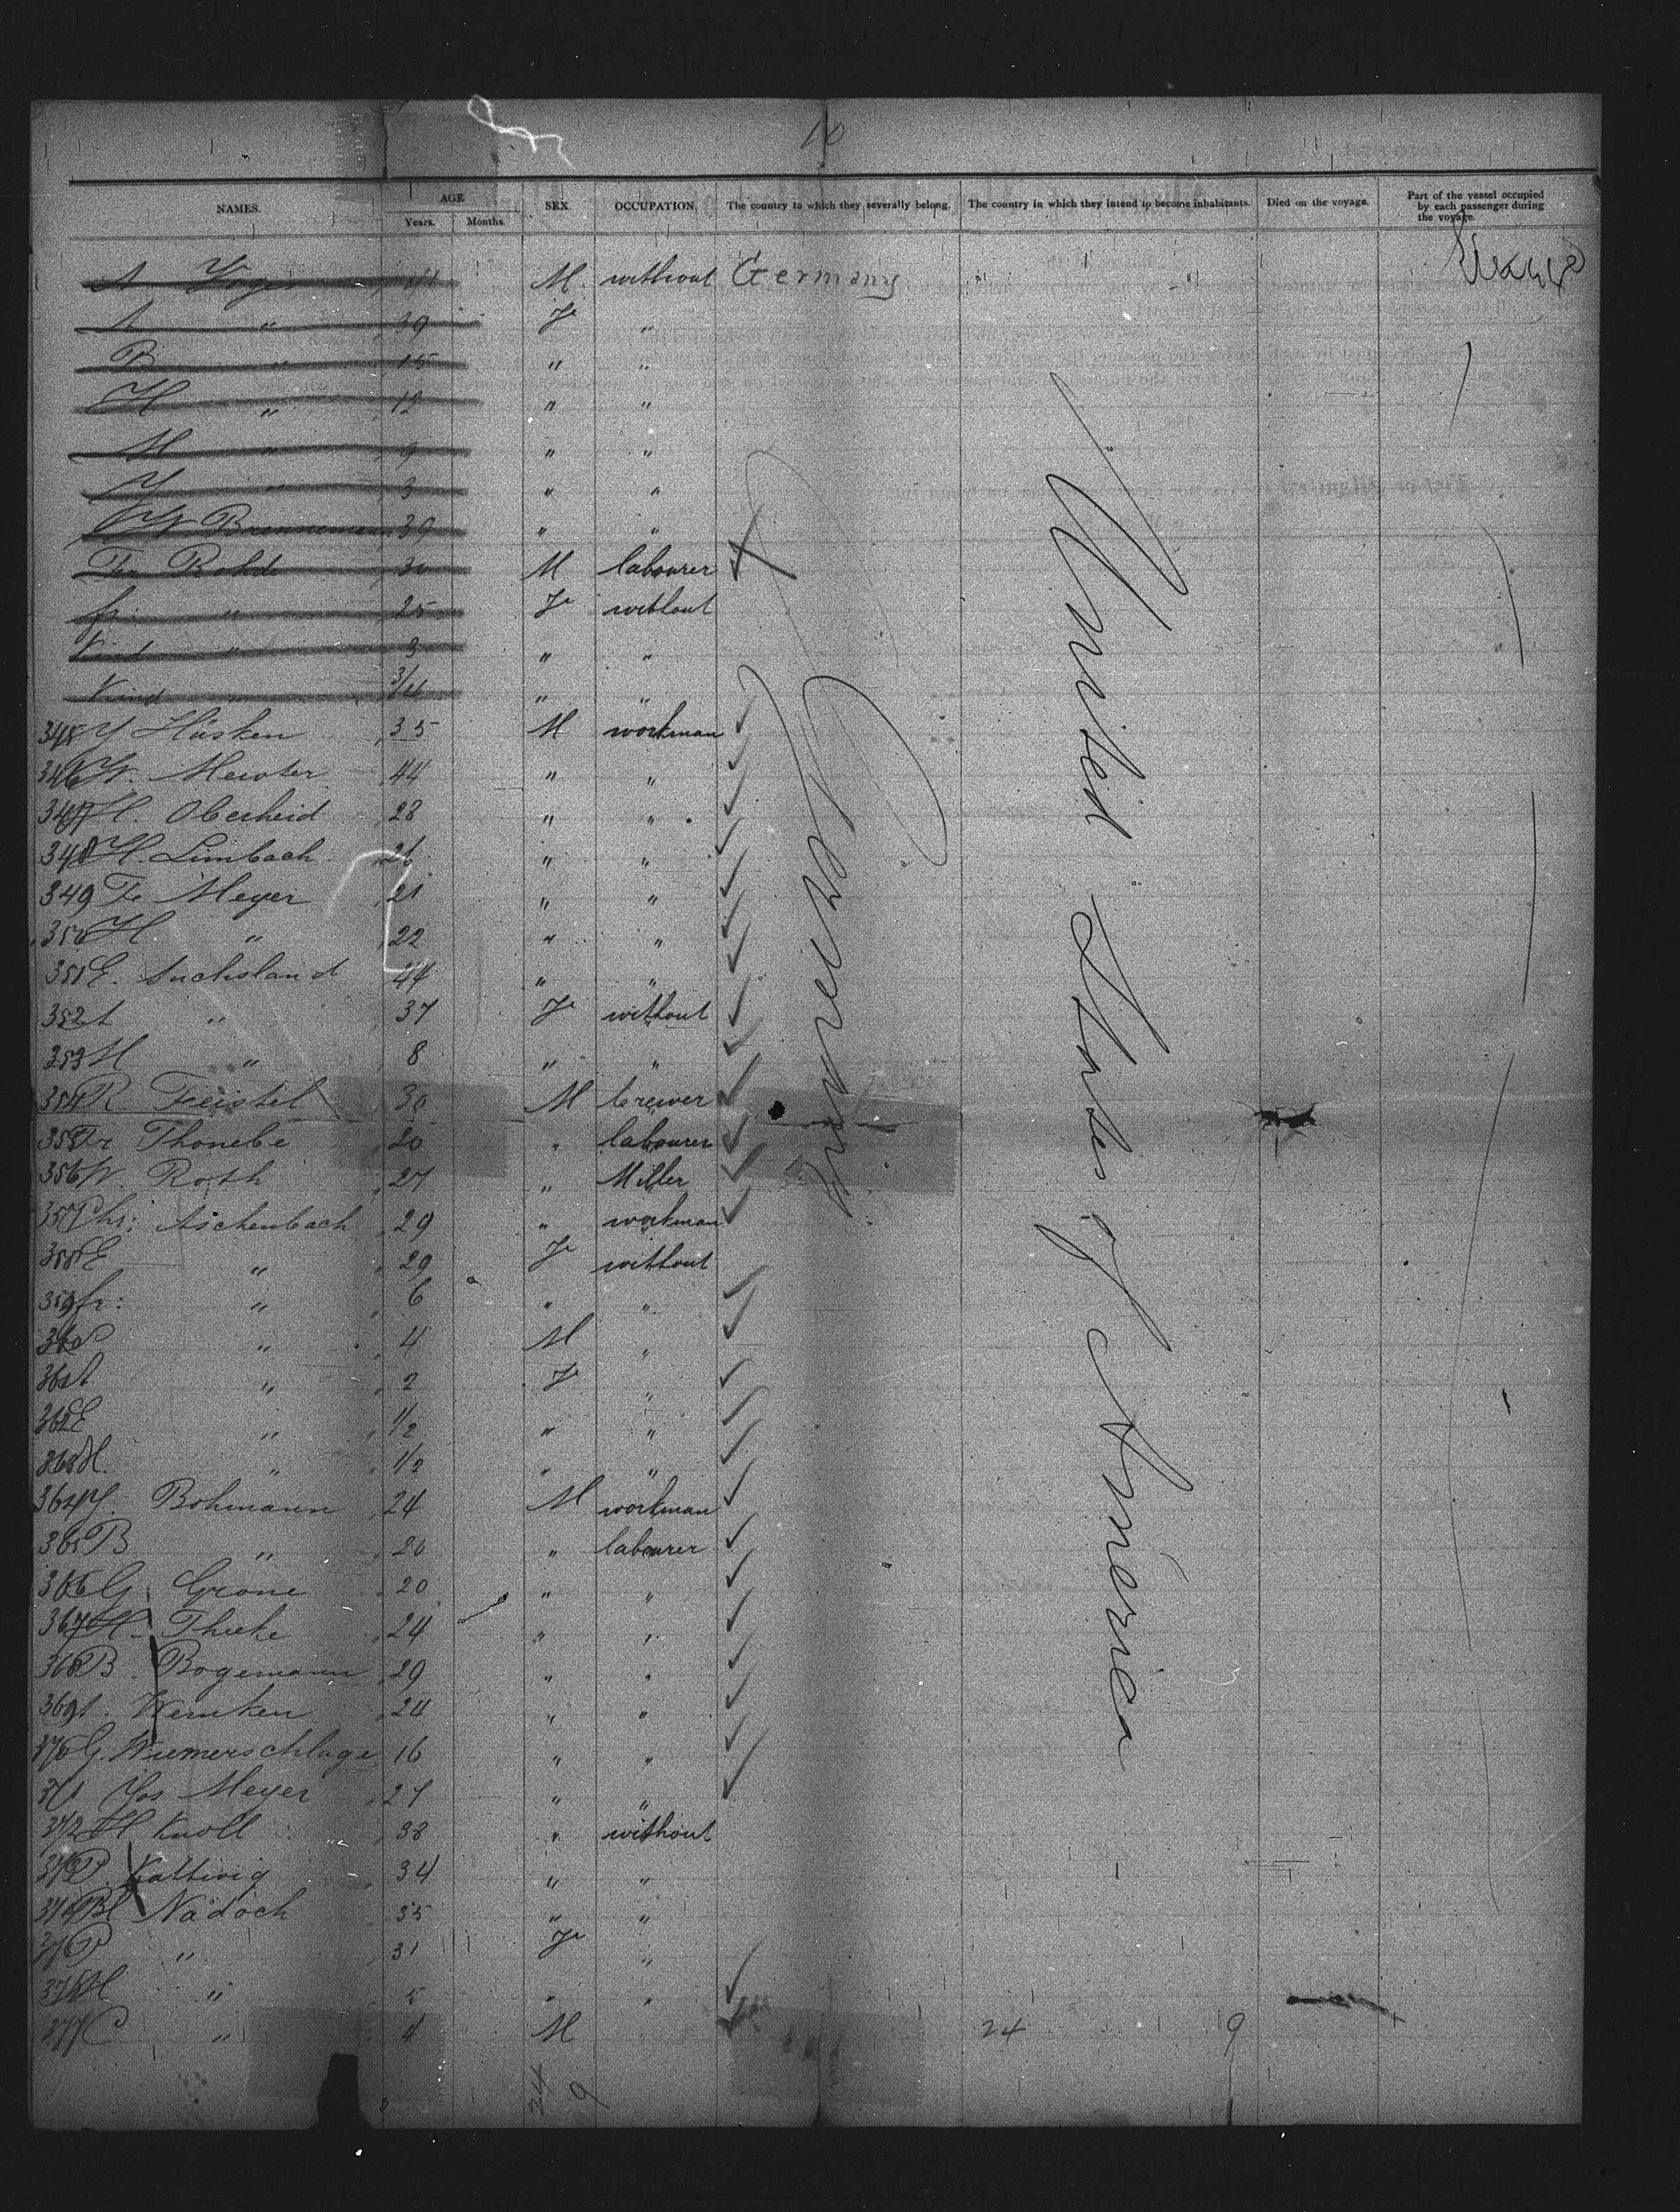 10
NAMES. AGE Years. Months. SEX. OCCUPATION. The country to which they severally belong. The country in which they intend to become inhabitants. Died on the voyage. Part of the vessel occupied by each passenger during the voyage.
A M. without Germany "
A " 39 F "
B " 15 " "
H " 12 " "
M " 9 " "
Y " 3 " "
W Brennemann 39 " "
Fr Rohde 30 M labourer
fr: " 25 F without
Kind " 3 " "
Kind " 3/4 " "
345 Y Hüsken 35 M workman
346 W. Meister 44 " "
347 H. Oberheid 28 " "
348 H. Limbach 26 " "
349 Fr Meyer 21 " "
350 H " 22 " "
351 E. Suchsland 44 " "
352 A " 37 F without
353 M " 8 " "
354 R. Feistel 30 M brewer
355 Fr Thonebe 20 " labourer
356 W. Roth 27 " Miller
357 Chr: Aschenbach 29 " workman
358 E " 29 F without
359 fr: " 6 " "
360 " 4 M "
361 A " 2 F "
362 E " 1/2 " "
363 H. " 1/2 " "
364 Y. Bohmann 24 M workman
365 B " 20 " labourer
366 G. Grone 20 " "
367 H. Thieke 24 " "
368 B. Bogemann 29 " "
369 A. Wemken 24 " "
370 G. Wiemerschlage 16 " "
371 Jos Meyer 27 " "
372 H Knoll 38 " without
373 P. Kattwig 34 " "
374 Bl Nadoch 35 " "
375 P " 31 F "
376 M " 5 " "
377 C " 4 M 24 9
Germany
United States of America
24 9